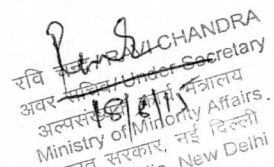 रवि चन्द्रा/RAVI CHANDRA
अवर सचिव/Under Secretary
18/8/15
अल्पसंख्यक कार्य मंत्रालय
Ministry of Minority Affairs.
भारत सरकार, नई दिल्ली
New Delhi